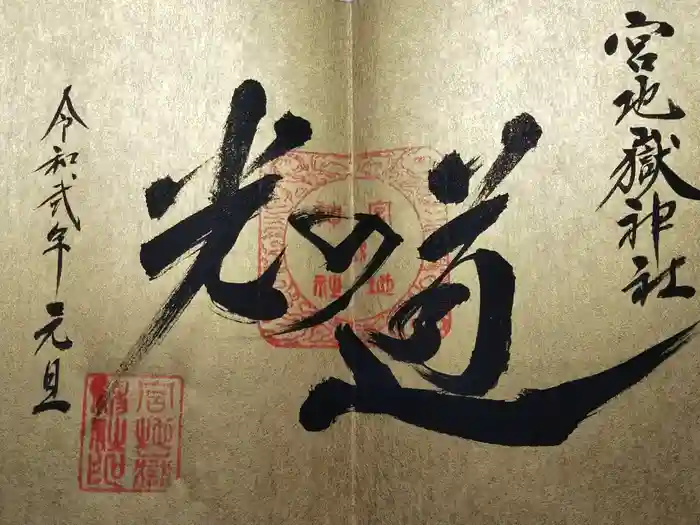 宮地嶽神社
光の道
令和弐年元旦
宮地嶽神社